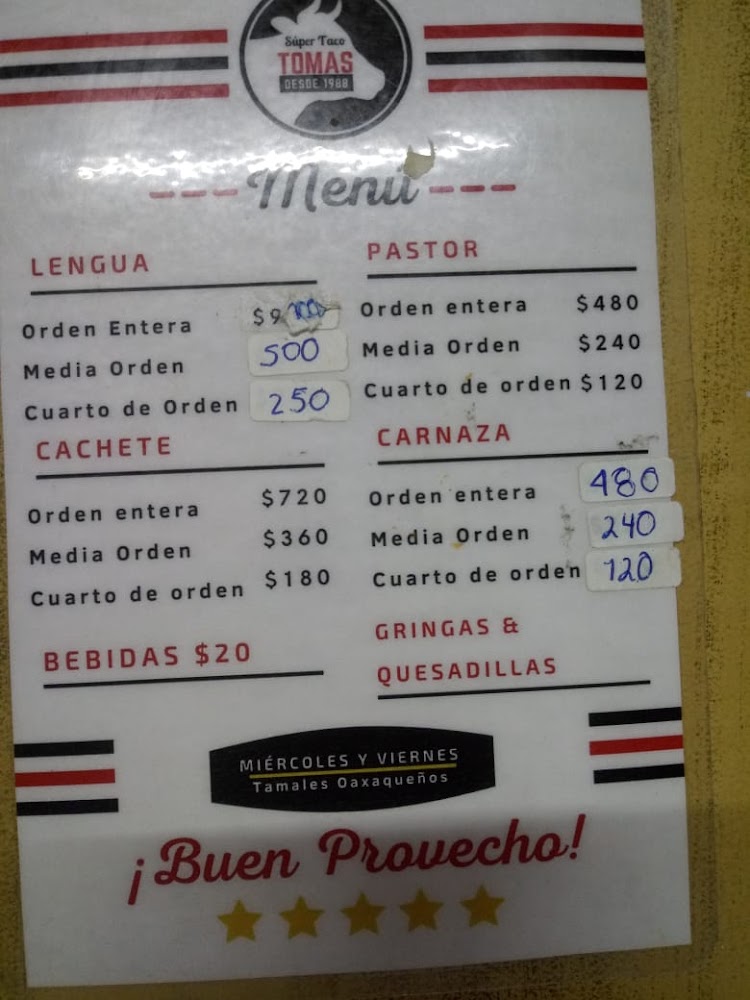 Súper Taco
TOMAS
DESDE 1988
Menú
LENGUA
Orden Entera $9
Media Orden 500
Cuarto de Orden 250
CACHETE
Orden entera $720
Media Orden $360
Cuarto de orden $180
BEBIDAS $20
PASTOR
Orden entera $480
Media Orden $240
Cuarto de orden $120
CARNAZA
Orden entera 480
Media Orden 240
Cuarto de orden 120
GRINGAS &
QUESADILLAS
MIÉRCOLES Y VIERNES
Tamales Oaxaqueños
¡Buen Provecho!